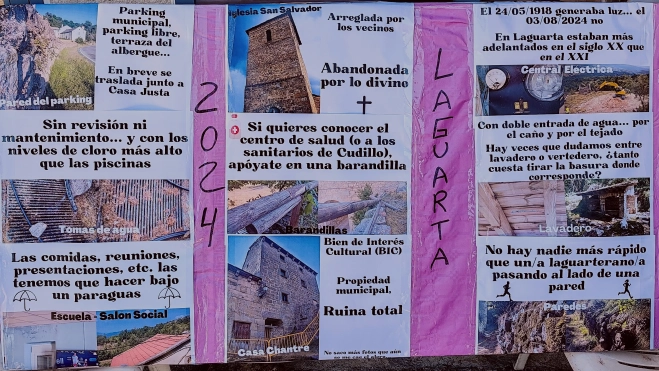 Parking
municipal,
parking libre,
terraza del
albergue...
En breve se
traslada junto a
Casa Justa
Pared del parking
Sin revisión ni
manteniminto... y con los
niveles de cloro más alto
que las piscinas
Tomas de agua
Las comidas, reuniones,
presentaciones, etc. las
tenemos que hacer bajo
un paraguas
Escuela - Salon Social
2024
Iglesia San Salvador
Arreglada por
los vecinos
Abandonada
por lo divino
Si quieres conocer el
centro de salud (o a los
sanitarios de Cudillo),
apóyate en una barandilla
Barandillas
Bien de Interés
Cultural (BIC)
Propiedad
municipal,
Ruina total
No saco más fotos que aún
Casa Chantre
LAGUARTA
El 24/05/1918 generaba luz... el
03/08/2024 no
En Laguarta estaban más
adelantados en el siglo XX que
en el XXI
Central Electrica
Con doble entrada de agua... por
el caño y por el tejado
Hay veces que dudamos entre
lavadero o vertedero. ¿tanto
cuesta tirar la basura donde
corresponde?
Lavadero
No hay nadie más rápido
que un/a laguarterano/a
pasando al lado de una
pared
Paredes